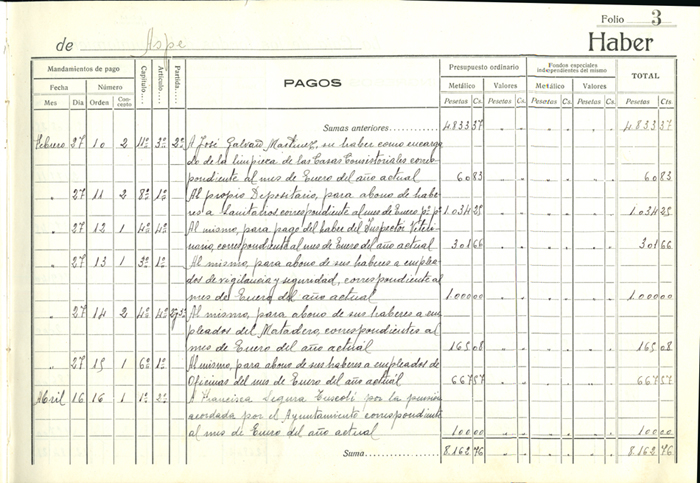 Folio 3
de Aspe Haber
Mandamientos de pago Capítulo.... Artículo.... Partida.... PAGOS Presupuesto ordinario Fondos especiales independientes del mismo TOTAL
Fecha Número Metálico Valores Metálico Valores
Mes Día Ordes Con-cepto Pesetas Cs. Pesetas Cs. Pesetas Cs. Pesetas Cs. Pesetas Cts.
Sumas anteriores 4833 37 4833 37
Febrero 27 10 2 4º 3º 2º A José Galvañ Martinez, su haber como encarga
do de la limpieza de las Casas Consistoriales corres
pondiente al mes de Enero del año actual 60 83 60 83
" 27 11 2 8º 1º Al propio Depositario, para abono de habe
res a Sanitarios correspondiente al mes de Enero pº pº 1.034 25 1.034 25
" 27 12 1 4º 4º Al mismo, para pago del haber del Inspector Vete
rinario, correspondiente al mes de Enero del año actual 301 66 301 66
" 27 13 1 3º 1º Al mismo, para abono de sus haberes a emplea
dos de vigilancia y seguridad, correspondiente al
mes de Enero del año actual 1.000 00 1.000 00
" 27 14 2 4º 4º Al mismo, para abono de sus haberes a em
pleados del Matadero, correspondientes al
mes de Enero del año actual 165 08 165 08
" 27 15 1 6º 1º Al mismo, para abono de sus haberes a empleados de
Oficinas del mes de Enero del año actual 667 57 667 57
Abril 16 16 1 1º 2º A Francisca Segura por la pensión
acordada por el Ayuntamiento correspondiente
al mes de Enero del año actual 100 00 100 00
Suma 8.162 76 8.162 76